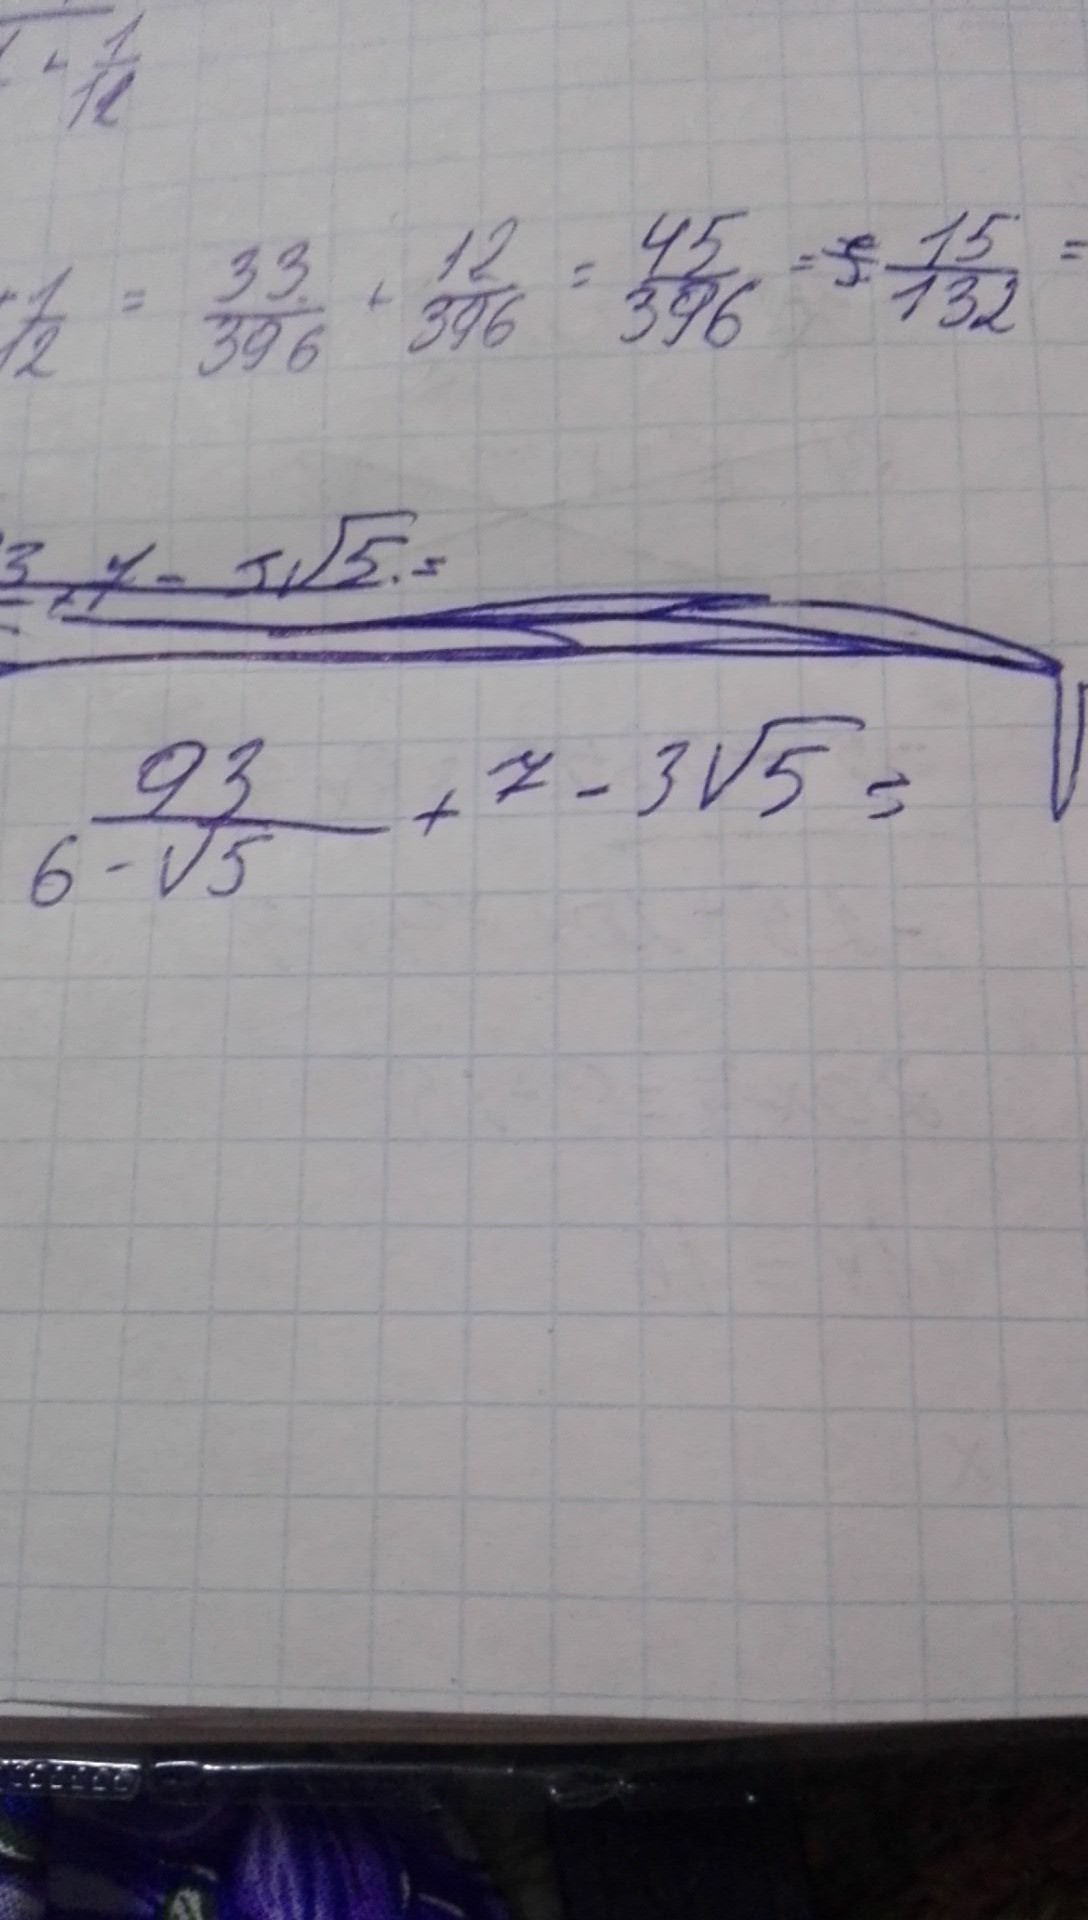 + 1/12
+ 1/12 = 33/396 + 12/396 = 45/396 = 15/132 =
3 + 7 - 3√5 =
93/(6 - √5) + 7 - 3√5 =